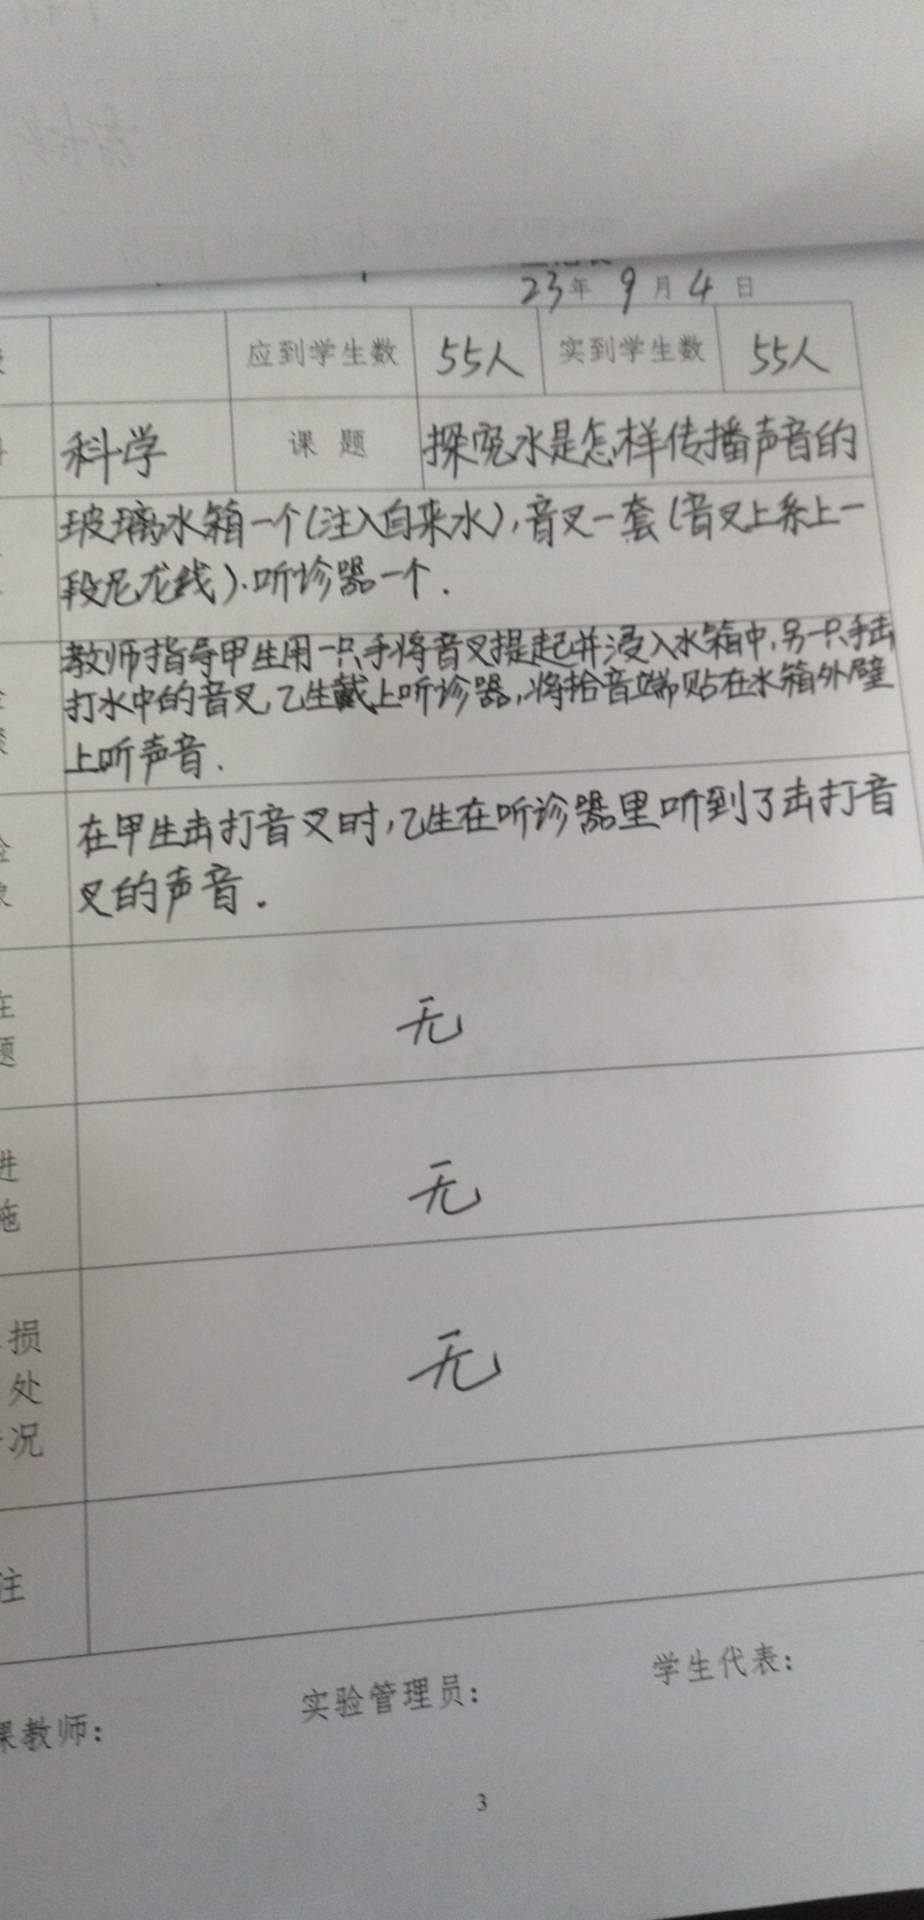 23年 9月 4日
应到学生数 55人 实到学生数 55人
科学 课 题 探究水是怎样传播声音的
玻璃水箱一个(注入自来水),音叉一套(音叉上系上一
段尼龙线).听诊器一个.
教师指导甲生用一只手将音叉提起并浸入水箱中,另一只手击
打水中的音叉,乙生戴上听诊器,将拾音端贴在水箱外壁
上听声音.
在甲生击打音叉时,乙生在听诊器里听到了击打音
叉的声音.
题
无
进
施
无
损
处
况
无
注
教师:
实验管理员:
学生代表:
3